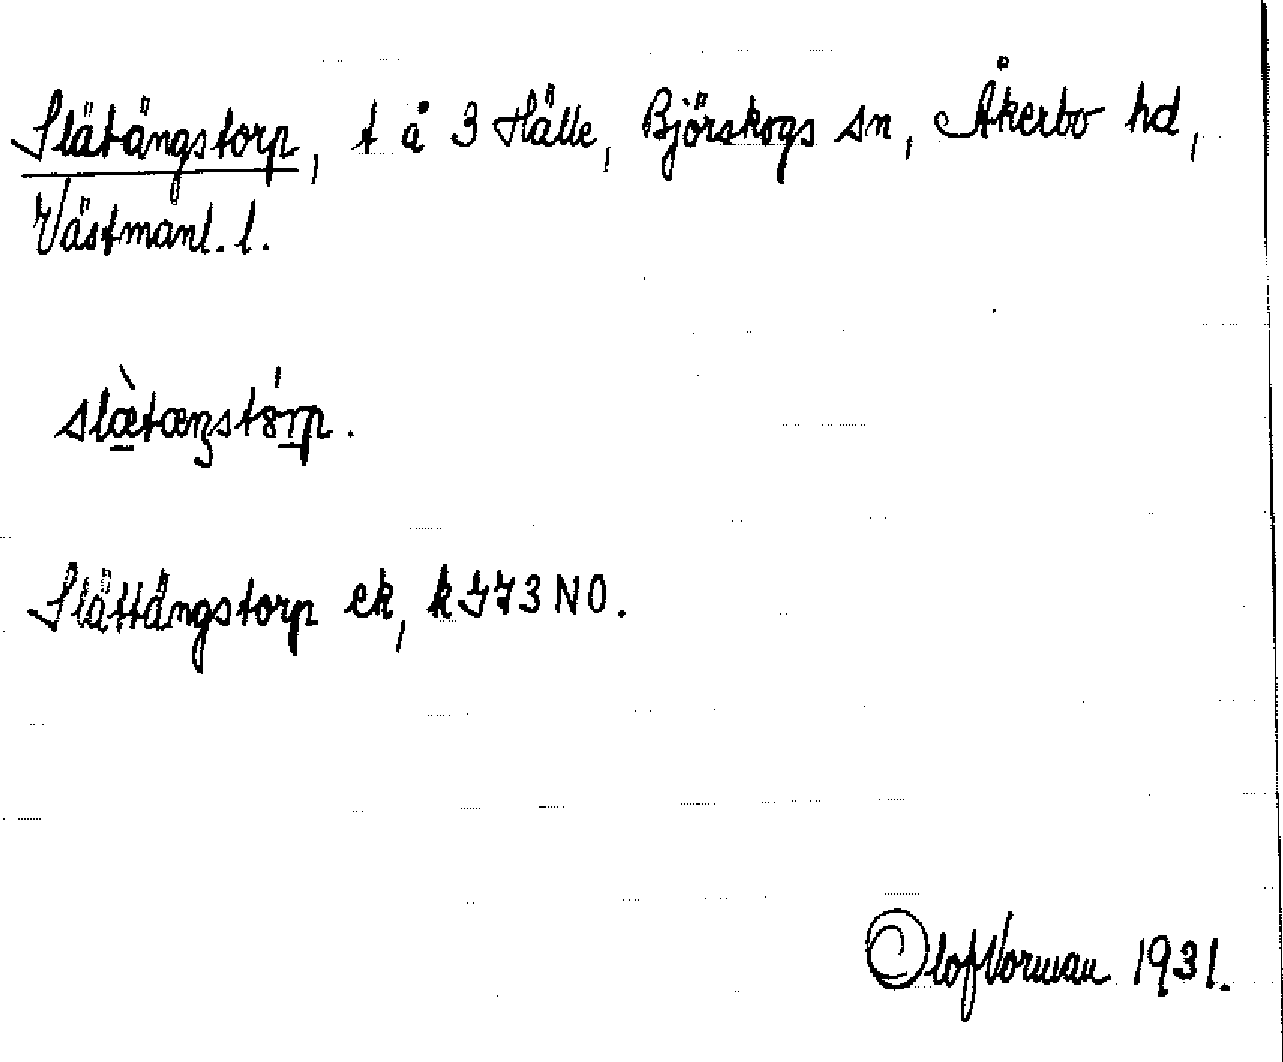 Slätängstorp, t å 3 Hälle, Björskogs sn, Åkerbo hd,
Västmanl. l.
slæ̀tæŋstórp.
Slättängstorp ek, k 773 NO.
Olof Vorman 1931.